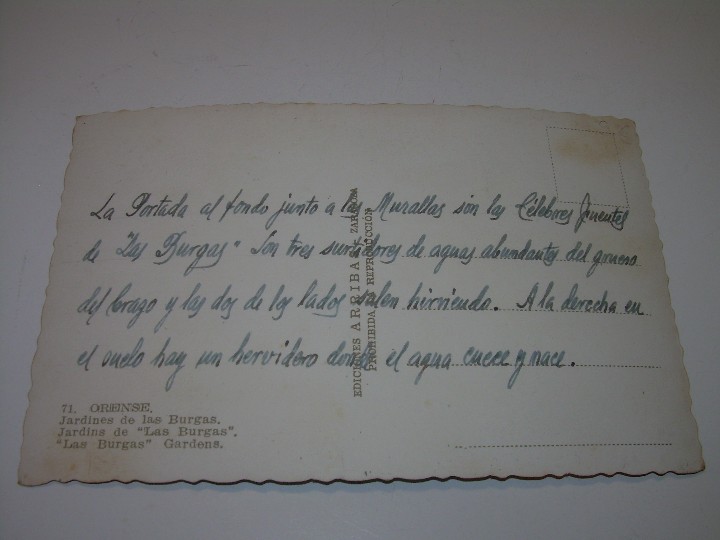 La Portada al fondo junto a las Murallas son las Célebres fuentes
de "Las Burgas" Son tres surtidores de aguas abundantes del grueso
del brazo y las dos de los lados salen hirviendo. A la derecha en
el suelo hay un hervidero donde el agua cuece y nace.
EDICIONES ARRIBAS ZARAGOZA
PROHIBIDA REPRODUCCIÓN
71. ORENSE.
Jardines de las Burgas.
Jardins de "Las Burgas".
"Las Burgas" Gardens.